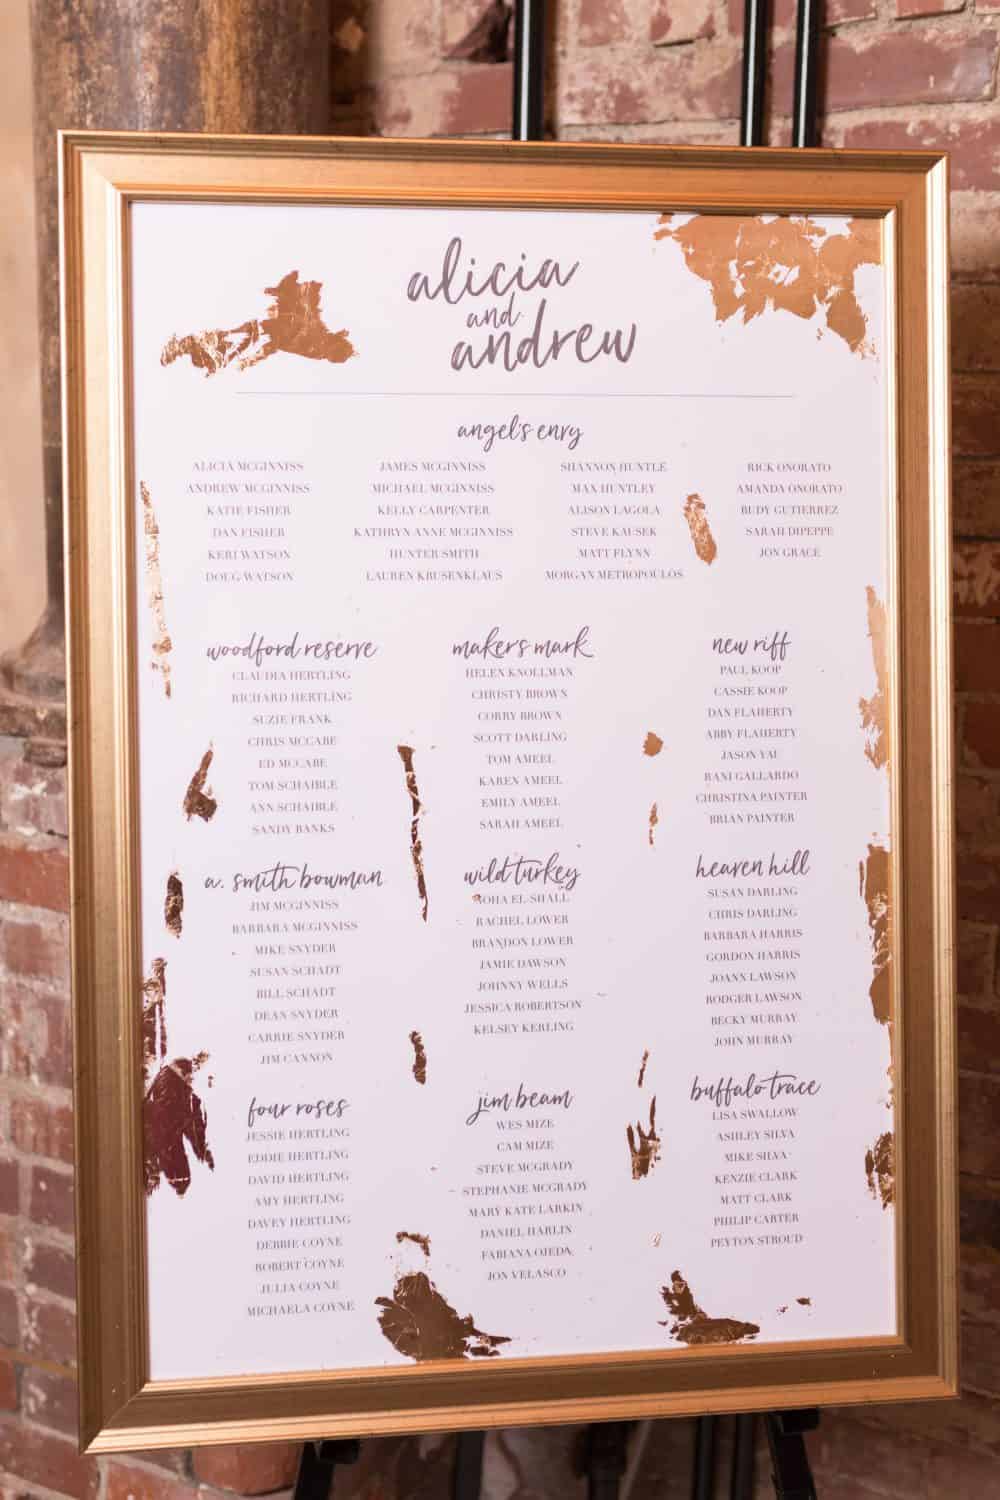 alicia
and
andrew
angel's enry
ALICIA MCGINNISS
ANDREW MCGINNISS
KATIE FISHER
DAN FISHER
KERI WATSON
DOUG WATSON
JAMES MCGINNISS
MICHAEL MCGINNISS
KELLY CARPENTER
KATHRYN ANNE MCGINNISS
HUNTER SMITH
LAUREN KRUSENKLAUS
SHANNON HUNTLE
MAX HUNTLEY
ALISON LAGOLA
STEVE KAUSEK
MATT FLYNN
MORGAN METROPOULOS
RICK ONORATO
AMANDA ONORATO
RUDY GUTIERREZ
SARAH DIPEPPE
JON GRACE
woodford reserve
CLAUDIA HERTLING
RICHARD HERTLING
SUZIE FRANK
CHRIS MCCABE
ED MCCABE
TOM SCHAIBLE
ANN SCHAIBLE
SANDY BANKS
maker's mark
HELEN KNOLLMAN
CHRISTY BROWN
CORRY BROWN
SCOTT DARLING
TOM AMEEL
KAREN AMEEL
EMILY AMEEL
SARAH AMEEL
new riff
PAUL KOOP
CASSIE KOOP
DAN FLAHERTY
ABBY FLAHERTY
JASON YAU
RANI GALLARDO
CHRISTINA PAINTER
BRIAN PAINTER
a. smith bowman
JIM MCGINNISS
BARBARA MCGINNISS
MIKE SNYDER
SUSAN SCHADT
BILL SCHADT
DEAN SNYDER
CARRIE SNYDER
JIM CANNON
wild turkey
NOHA EL-SHALL
RACHEL LOWER
BRANDON LOWER
JAMIE DAWSON
JOHNNY WELLS
JESSICA ROBERTSON
KELSEY KERLING
heaven hill
SUSAN DARLING
CHRIS DARLING
BARBARA HARRIS
GORDON HARRIS
JOANN LAWSON
RODGER LAWSON
BECKY MURRAY
JOHN MURRAY
four roses
JESSIE HERTLING
EDDIE HERTLING
DAVID HERTLING
AMY HERTLING
DAVEY HERTLING
DEBBIE COYNE
ROBERT COYNE
JULIA COYNE
MICHAELA COYNE
jim beam
WES MIZE
CAM MIZE
STEVE MCGRADY
STEPHANIE MCGRADY
MARY KATE LARKIN
DANIEL HARLIN
FABIANA OJEDA
JON VELASCO
buffalo trace
LISA SWALLOW
ASHLEY SILVA
MIKE SILVA
KENZIE CLARK
MATT CLARK
PHILIP CARTER
PEYTON STROUD